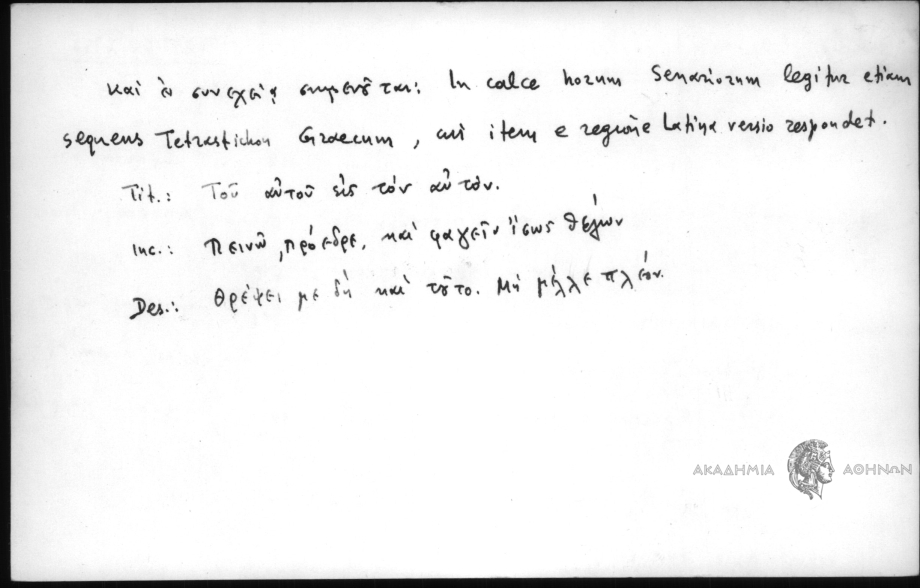 καὶ ἐν συνεχείᾳ σημειοῦται: In calce horum Senariorum legitur etiam
sequens Tetrastichon Graecum, cui item e regione Latina versio respondet.
Tit.: Τοῦ αὐτοῦ εἰς τὸν αὐτόν.
Inc.: Πεινῶ, πρόεδρε, καὶ φαγεῖν ἴσως θέλων
Des.: Θρέψει με δὴ καὶ τοῦτο. Μὴ μέλλε πλέον.
ΑΚΑΔΗΜΙΑ ΑΘΗΝΩΝ